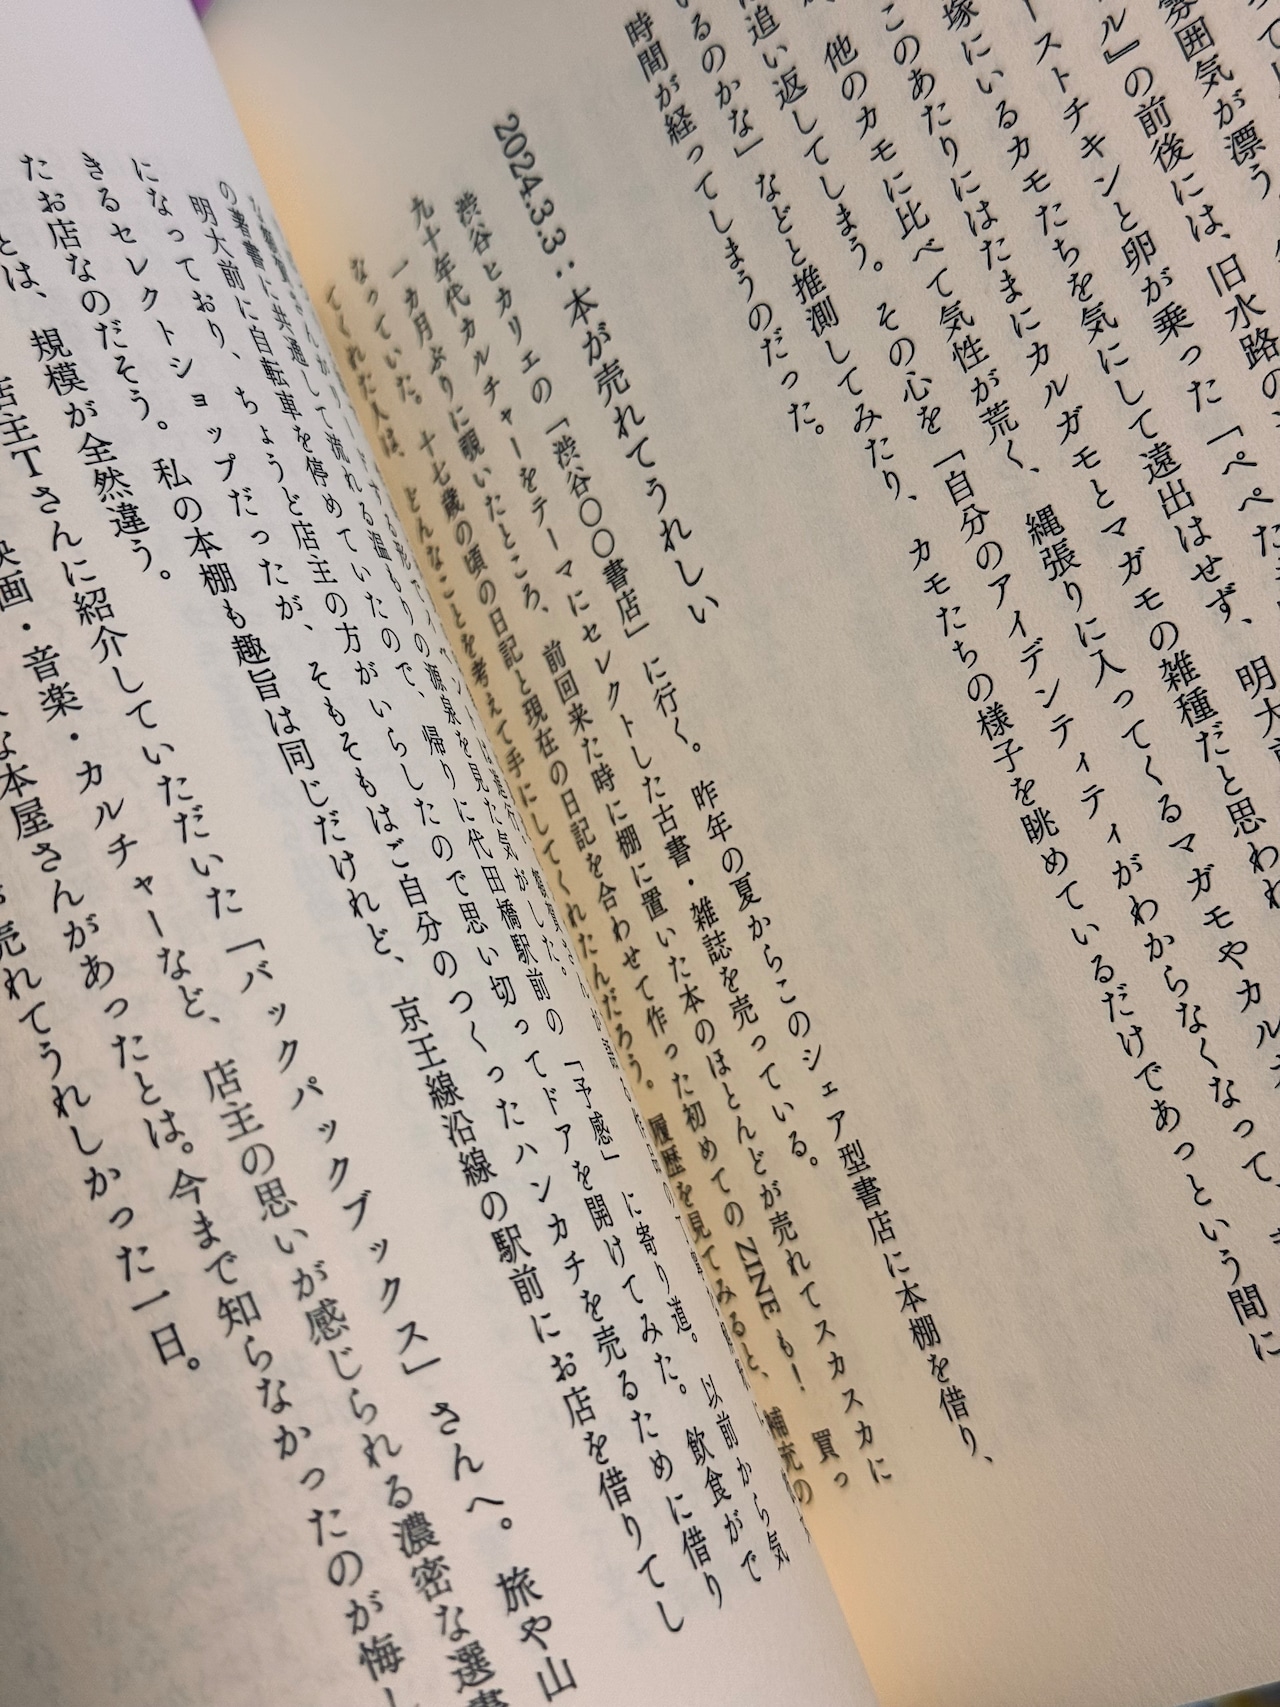 雰囲気が漂う。
ル』の前後には、旧水路の
ーストチキンと卵が乗った「ぺぺた
塚にいるカモたちを気にして遠出はせず、明大
このあたりにはたまにカルガモとマガモの雑種だと思われ
、他のカモに比べて気性が荒く、縄張りに入ってくるマガモやカルガ
追い返してしまう。その心を「自分のアイデンティティがわからなくなって、
いるのかな」などと推測してみたり、カモたちの様子を眺めているだけであっという間に
時間が経ってしまうのだった。
2024.3.3:本が売れてうれしい
渋谷ヒカリエの「渋谷〇〇書店」に行く。昨年の夏からこのシェア型書店に本棚を借り、
九十年代カルチャーをテーマにセレクトした古書・雑誌を売っている。
一カ月ぶりに覗いたところ、前回来た時に棚に置いた本のほとんどが売れてスカスカに
なっていた。十七歳の頃の日記と現在の日記を合わせて作った初めてのZINEも!買っ
てくれた人は、どんなことを考えて手にしてくれたんだろう。履歴を見てみると、補充の
の著書に共通して流れる温もりの源泉を見た気がした。
明大前に自転車を停めていたので、帰りに代田橋駅前の「予感」に寄り道。以前から気
になっており、ちょうど店主の方がいらしたので思い切ってドアを開けてみた。飲食がで
きるセレクトショップだったが、そもそもはご自分のつくったハンカチを売るために借り
たお店なのだそう。私の本棚も趣旨は同じだけれど、京王線沿線の駅前にお店を借りてし
とは、規模が全然違う。
店主Tさんに紹介していただいた「バックパックブックス」さんへ。旅や山
映画・音楽・カルチャーなど、店主の思いが感じられる濃密な選書
な本屋さんがあったとは。今まで知らなかったのが悔し
売れてうれしかった一日。